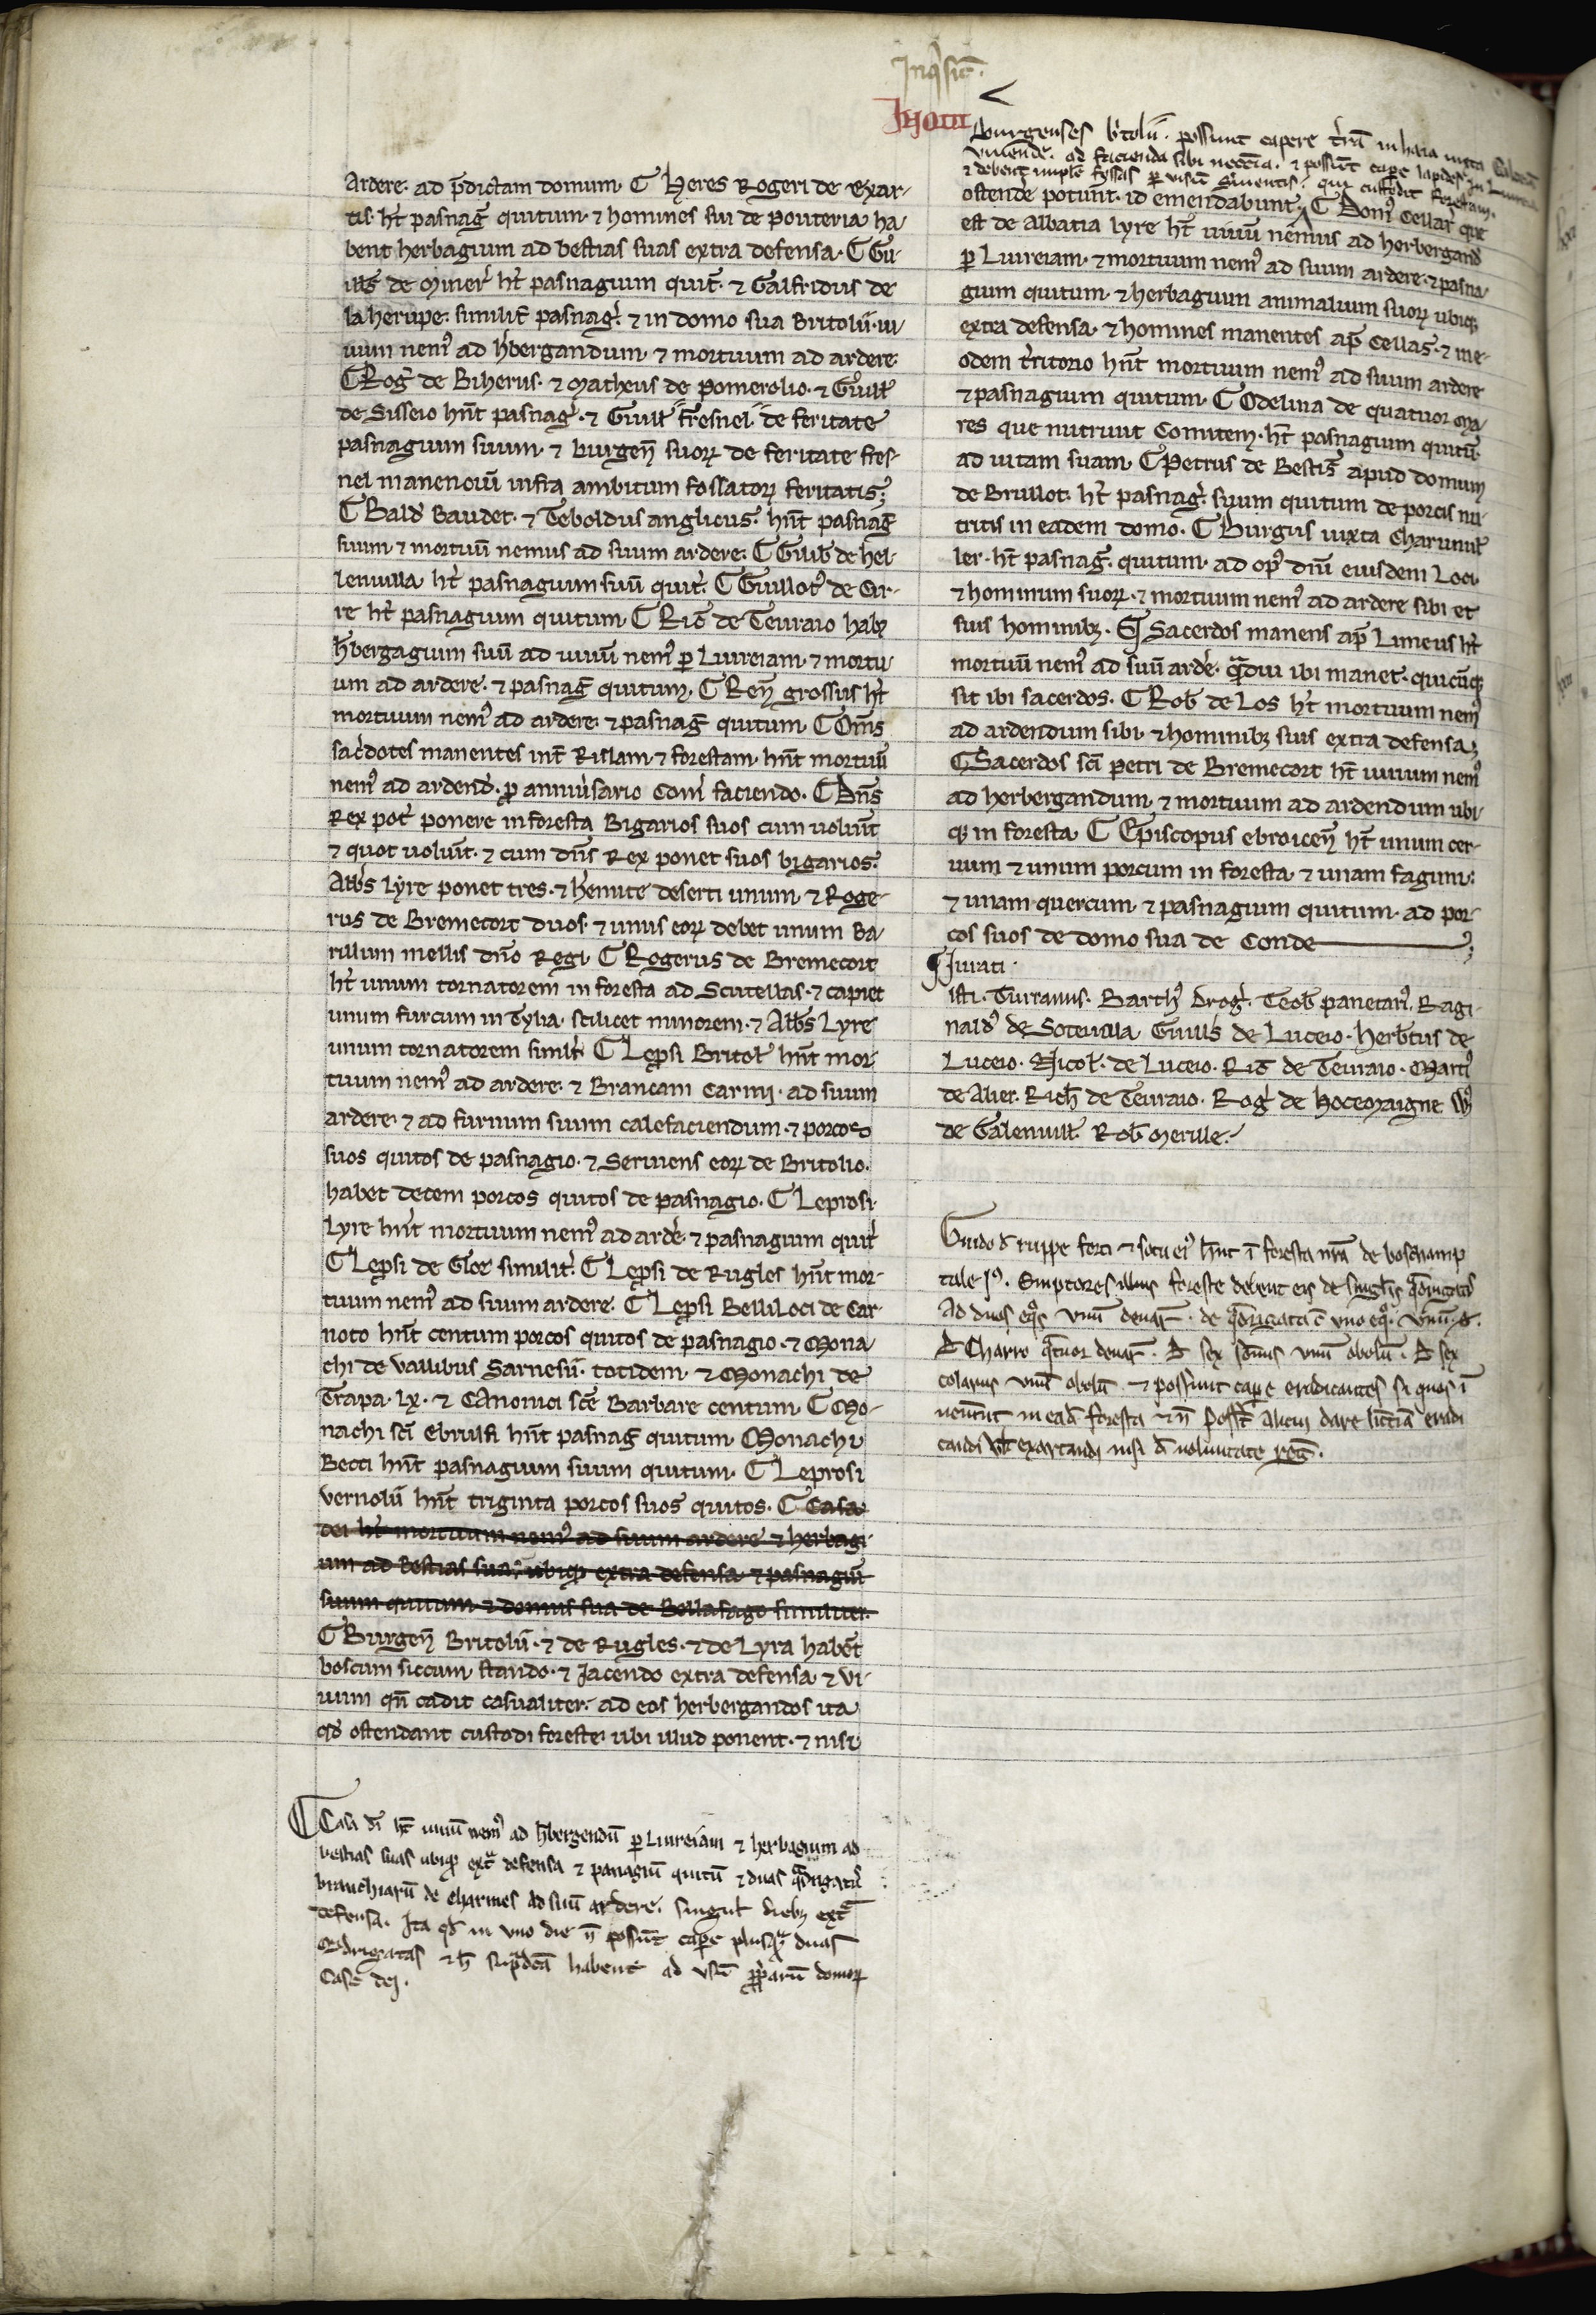 Inq̇sic̄.
ardere. ad p̄dictam domum. ⸿ Heres Rogeri de exar-
tis. hт̄ pasnaḡ quitum. ⁊ homines sui de Pouteria ha
bent herbagium ad bestias suas extra defensa. ⸿ Gui-
ill̄s de miner̄ ht̄ pasnagium quit̄. ⁊ Galfridus de
la herupe. similit̄ pasnaḡ. ⁊ in domo sua Britolii. ui
uum nem⁹ ad hb̄ergandum. ⁊ mortuum ad ardere.
⸿ Roḡ de Biherus. ⁊ Matheus de Pomerolio. ⁊ Guill̄
de Sisseio hn̄t pasnaḡ. ⁊ Guill̄ fresnel. de feritate
pasnagium suum. ⁊ burgen̄ suoꝝ de feritate fres-
nel manenciū infra ambitum fossatoꝝ feritatis;
⸿ Bald̄ Baudet. ⁊ Teboldus anglicus. hn̄t pasnaḡ
suum. ⁊ mortuū nemus ad suum ardere. ⸿ Guib̄ de hel-
lenuilla ht̄ pasnagium suū quit̄. ⸿ Guillot⁹ de Cir-
re ht̄ pasnagium quitum. ⸿ Ric̄ de Teuraio habꝫ
hb̄ergagium suū ad uiuū nem⁹ ꝑ Luireiam. ⁊ mortu
um ad ardere. ⁊ pasnaḡ quitum. ⸿ Ren̄ grossus ht̄
mortuum nem⁹ ad ardere. ⁊ pasnaḡ quitum. ⸿ Om̄s
sac̄dotes manentes int̄ Rislam. ⁊ forestam. hn̄t mortuū
nem⁹ ad ardend̄. ꝓ anniu̇sario Com̄ faciendo. ⸿ Dn̄s
Rex pot̄ ponere in foresta Bigarios suos cum uolūit
⁊ quot uolūit. ⁊ cum dn̄s Rex ponet suos bigarios.
Abb̄s Lyre ponet tres. ⁊ h̄emite deserti unum. ⁊ Roge-
rus de Bremecort duos. ⁊ unus eoꝝ debet unum Ba-
rillum mellis dn̄o Regi. ⸿ Rogerus de Bremecort
ht̄ unum tornatorem in foresta ad Scutellas. ⁊ capiet
unum furcum in Tylia. scilicet minorem. ⁊ Abb̄s Lyre
unum tornatorem simil̄r. ⸿ Lep̄si Britol̄ hn̄t mor-
tuum nem⁹ ad ardere. ⁊ Brancam carmi. ad suum
ardere. ⁊ ad furnum suum calefaciendum. ⁊ porcos
suos quitos de pasnagio. ⁊ Seruiens eoꝝ de Britolio.
habet decem porcos quitos de pasnagio. ⸿ Leprosi
Lyre hn̄t mortuum nem⁹ ad ard̄e. ⁊ pasnagium quit̄
⸿ Lep̄si de Glot̄ similit̄. ⸿ Lep̄si de Rugles hn̄t mor-
tuum nem⁹ ad suum ardere. ⸿ Lep̄si Belli Loci de Car-
noto hn̄t centum porcos quitos de pasnagio. ⁊ Mona
chi de Vallibus Sarnesii. totidem. ⁊ Monachi de
Trapa. Lx. ⁊ Canonici sc̄e Barbare centum. ⸿ Mo-
nachi sc̄i Ebrulfi hn̄t pasnaḡ quitum. Monachi
Becci hn̄t pasnagium suum quitum. ⸿ Leprosi
vernolii hn̄t triginta porcos suos quitos. ⸿ Casa
dei ht̄ mortuum nem⁹ ad suum ardere. ⁊ herbagi-
um ad bestias suas ubiqꝫ extra defensa. ⁊ pasnagiū
suum quitum. ⁊ domus sua de Bellafago similiter.
⸿ Burgen̄ Britolii. ⁊ de Rugles. ⁊ de Lyra habēt
boscum siccum. stando. ⁊ Jacendo extra defensa. ⁊ vi-
uum qn̄ cadit casualiter. ad eos herbergandos ita
qd̄ ostendant custodi foreste. ubi illud ponent. ⁊ nisi
⸿ Casa dī ht̄ uiuū nem⁹ ad hb̄ergendū ꝑ Luireiam ⁊ herbagium ad
bestias suas ubiqꝫ ext̄ defensa ⁊ panagiū quitū ⁊ duas q̄drigat̄s
branchiarū de charmes ad suū ardere. singul̄ diebꝫ ext̄
defensa. Ita qd̄ in uno die n̄ possūt cap̄e plusq̄ duas
q̄drigatas ⁊ h̄ sup̄dc̄a habent ad usū ꝓp̄arū domoꝝ
Case dei.
Burgenses b̄tolii. possunt capere t̄rā in haia iuxta
uiuende. ad facienda sibi neccīa. ⁊ possūt cape lapides in
⁊ debent imple fossas ꝑ uisū s̄uientis. qui custodit forestam.
ostende potūnt. id emendabunt. ⸿ Dom⁹ Cellar̄ que
est de Abbatia Lyre ht̄ uiuū nemus ad herbergand̄
ꝑ Luireiam. ⁊ mortuum nem⁹ ad suum ardere. ⁊ pasna
gium quitum. ⁊ herbagium animalium suoꝝ ubiqꝫ
extra defensa. ⁊ homines manentes ap̄ Cellas. ⁊ in e-
odem t̄ritorio hn̄t mortuum nem⁹ ad suum ardere
⁊ pasnagium quitum. ⸿ Odelina de quatuor ma
res que nutriuit Comitem. ht̄ pasnagium quitū
ad uitam suam. ⸿ Petrus de Bestis̄ apud domum
de Brullot. ht̄ pasnaḡ suum quitum de porcis nu
tritis in eadem domo. ⸿ Burgus iuxta Charunuil̄
ler. ht̄ pasnaḡ. quitum. ad op⁹ dn̄i eiusdem Loci.
⁊ hominum suoꝝ. ⁊ mortuum nem⁹ ad ardere sibi et
suis hominibꝫ. ⸿ Sacerdos manens ap̄ Limeus ht̄
mortuū nem⁹ ad suū ard̄e. q̄diu ibi manet. quicūqꝫ
sit ibi sacerdos. ⸿ Rob̄ de Los ht̄ mortuum nem⁹
ad ardendum sibi. ⁊ hominibꝫ suis extra defensa;
⸿ Sacerdos sc̄i Petri de Bremecort ht̄ uiuum nem⁹
ad herbergandum. ⁊ mortuum ad ardendum ubi-
qꝫ in foresta. ⸿ Episcopus ebroicen̄ ht̄ unum cer-
uum ⁊ unum porcum in foresta. ⁊ unam fagum.
⁊ unam quercum. ⁊ pasnagium quitum. ad por-
cos suos de domo sua de Conde;
¶ Jurati.
isti. Turranus. Barth⁹ Drog̃. Teob̄ panetar⁹. Ragi-
nald⁹ de Soteuilla. Guill̄s de Luceio. Herb̄tus de
Luceio. Nicol̄. de Luceio. Ric̄ de Teuraio. Mart⁹
de Alier. Rich̄ de Teuraio. Rog̃ de hocemaigne. W⁹
de Galenuill̄. Rob̄ Merille.
Guido d̄ ruppe forti ⁊ socii ei⁹ hn̄t ī foresta nr̄a de boschamp
tale J⁹. Emptores illius foreste debent eis de singul̄is q̄drigatis
Ad duos eq̄s unū denar̄. de q̄drigata c̄ uno eq̄. unū d̄.
D̄ Charro q̄tuor denar̄. D̄ sex sūmis unū obolū. D̄ sex
colariis unū obolū. ⁊ possunt cap̄e eradicantes si quos ī
uenerint in ead̄ foresta ⁊ n̄ posst̄ alicui dare licc̄iā eradi
candi ul̄ exartandi nisi d̄ uoluntate reḡ.